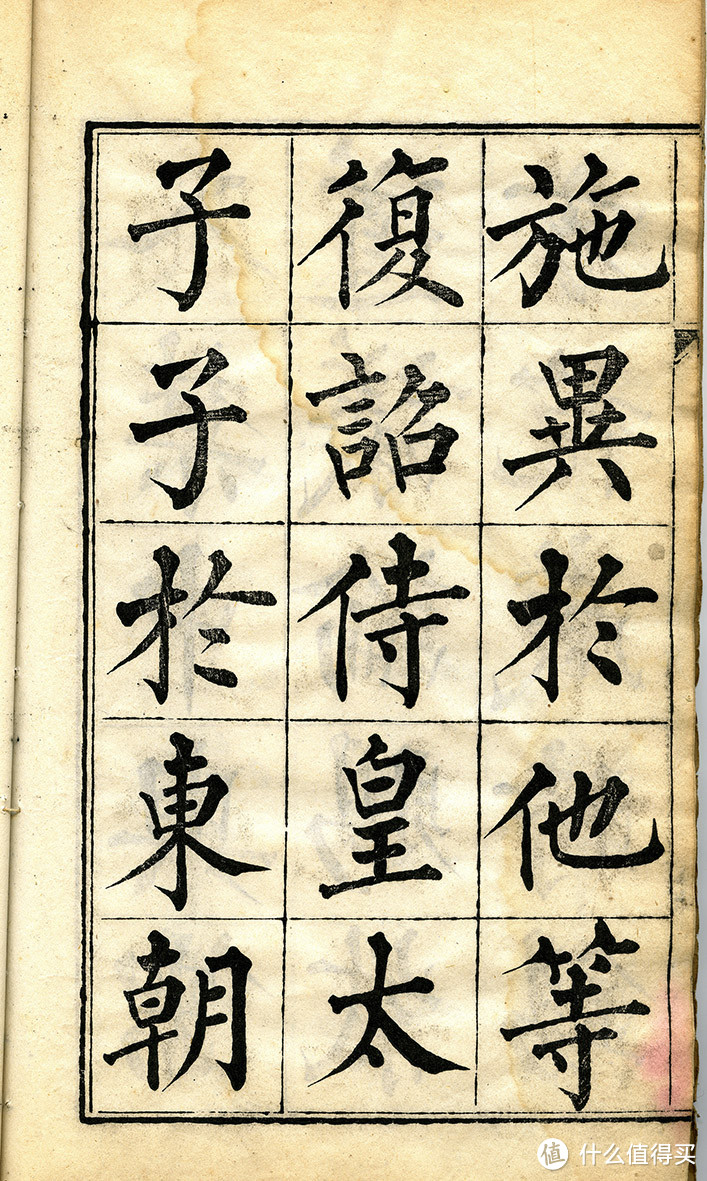 施異於他等
復詔侍皇太
子子於東朝
值 什么值得买